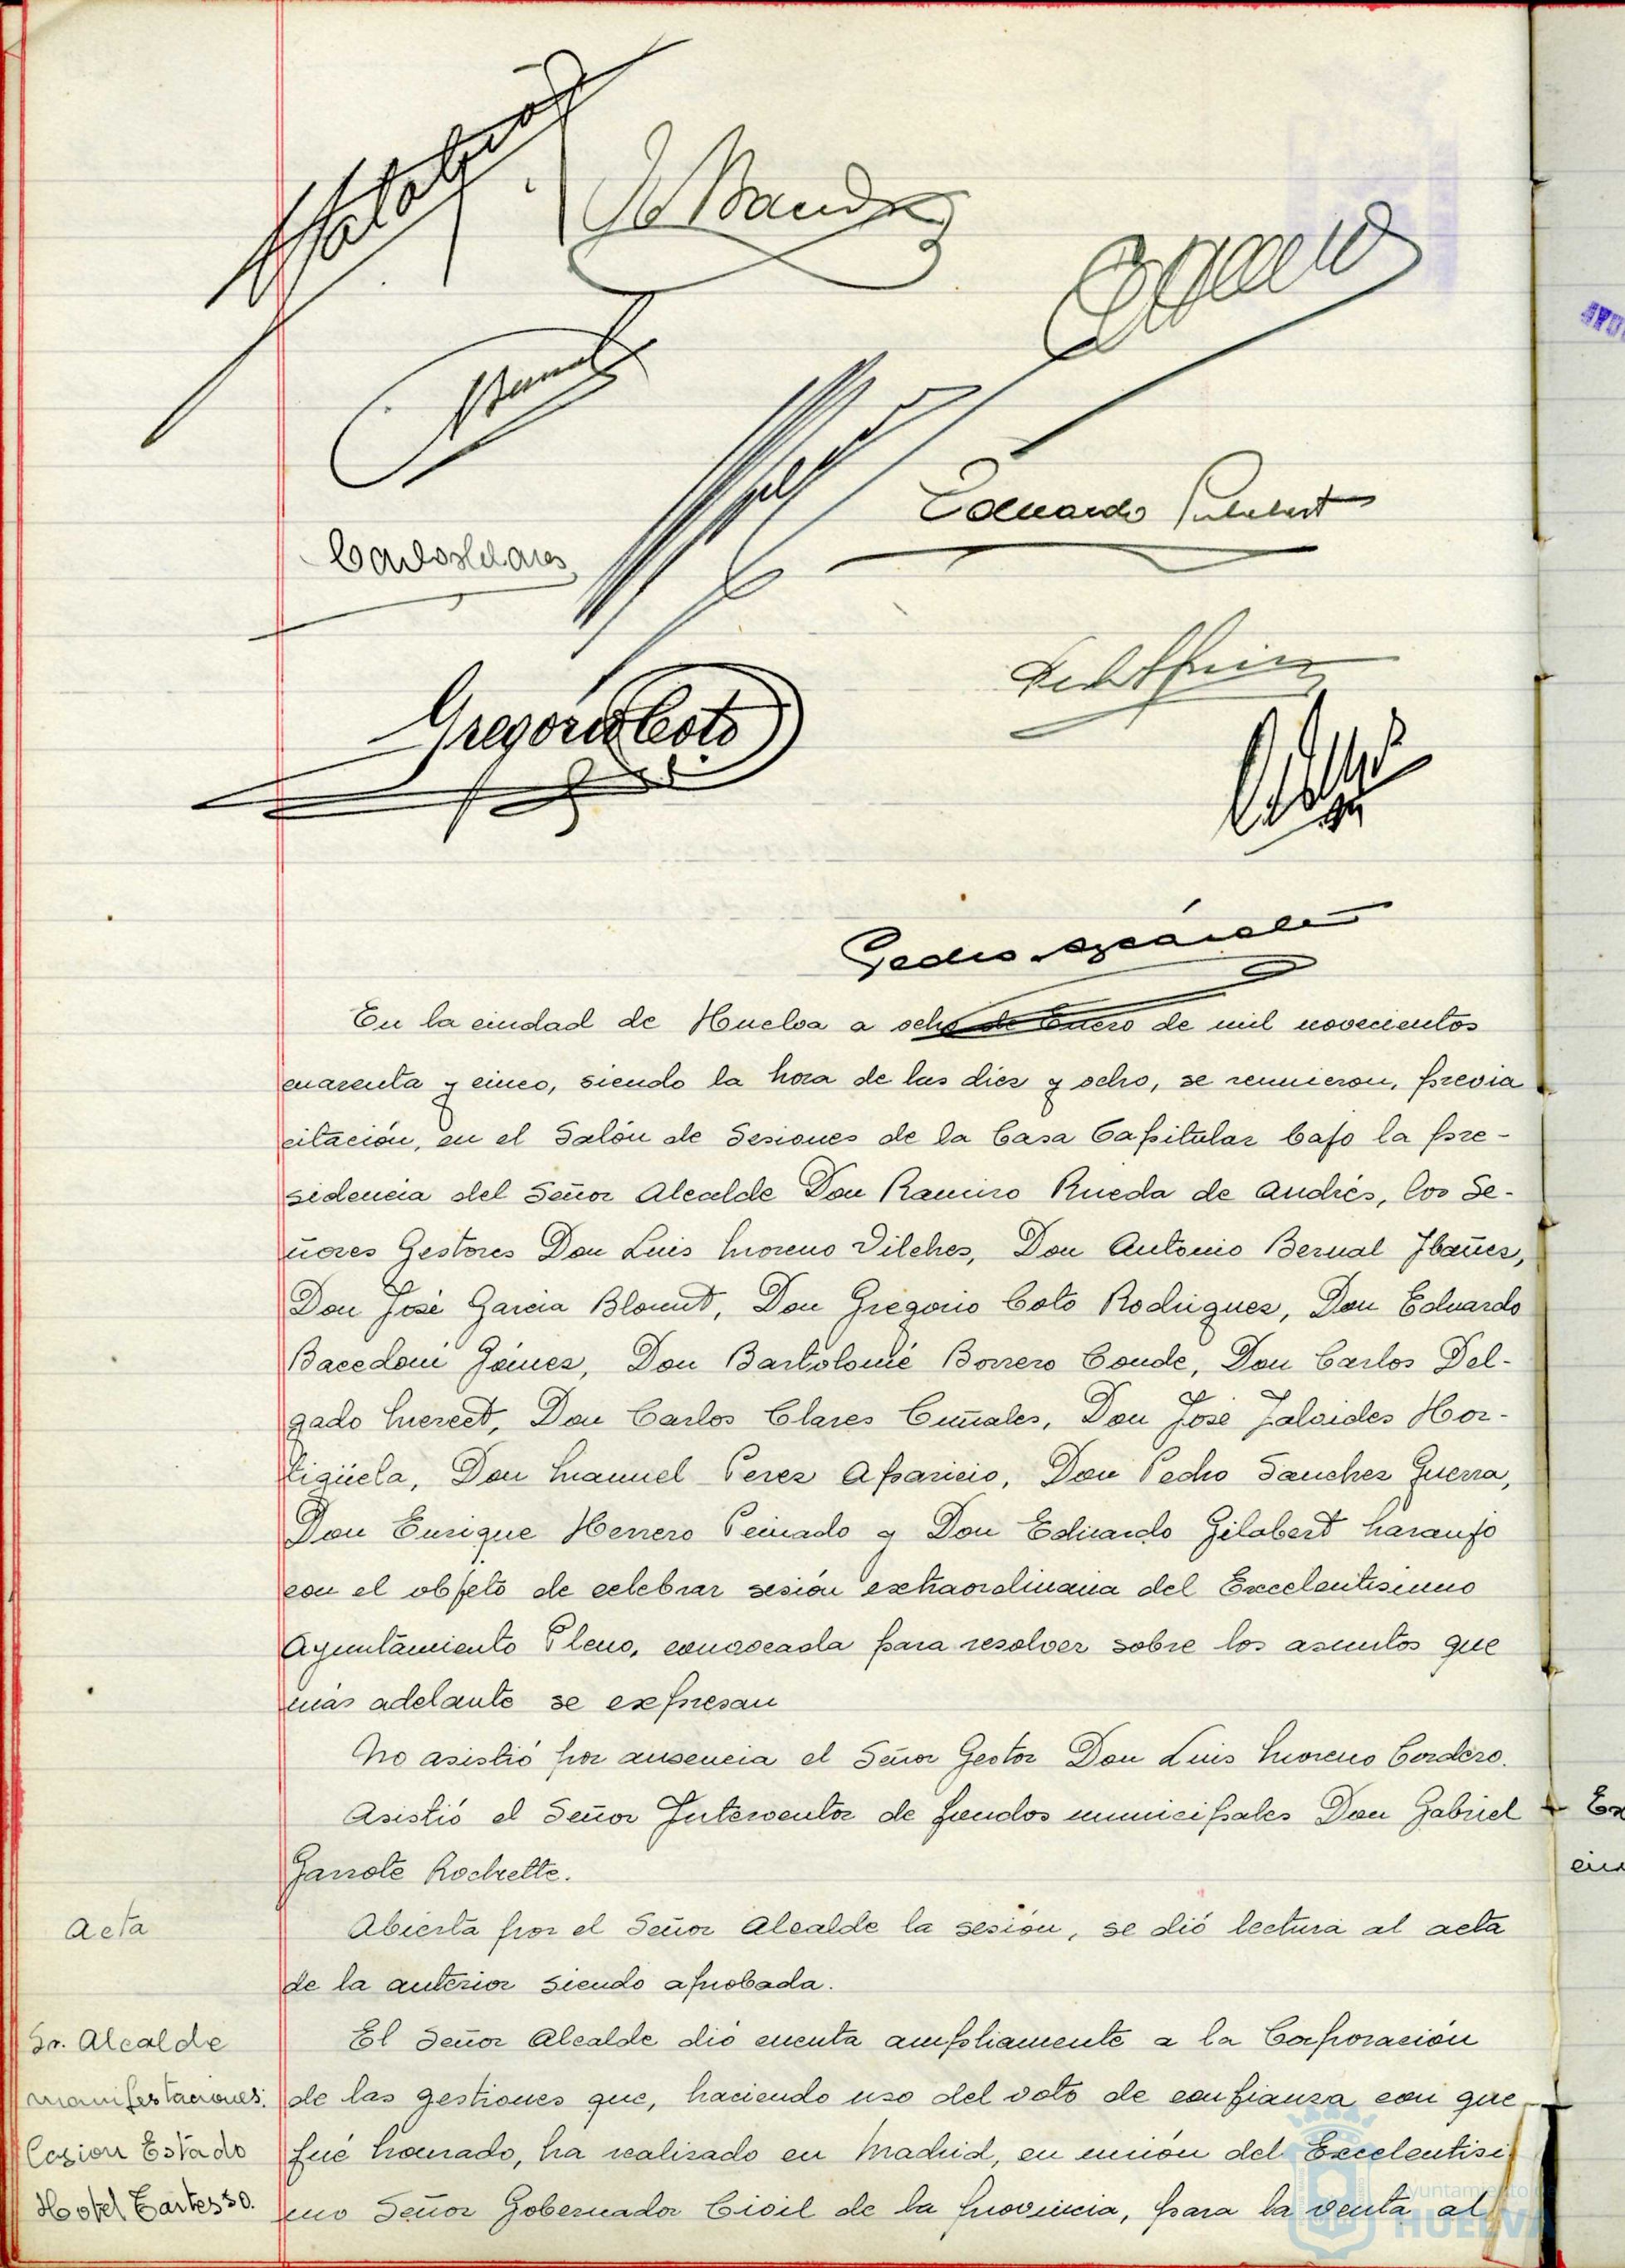 Eduardo Gilabert
Carlos Clares
Gregorio Coto
Pedro
En la ciudad de Huelva a ocho de Enero de mil novecientos
cuarenta y cinco, siendo la hora de las diez y ocho, se reunieron, previa
citación, en el Salón de Sesiones de la Casa Capitular bajo la pre-
sidencia del Señor Alcalde Don Ramiro Rueda de Andrés, los Se-
ñores Gestores Don Luis Moreno Vilches, Don Antonio Bernal Ibañez,
Don José Garcia Blount, Don Gregorio Coto Rodriguez, Don Eduardo
Bacedoni Gómez, Don Bartolomé Borrero Conde, Don Carlos Del-
gado Merect, Don Carlos Clares Cumales, Don José Jalvides Hor-
tigüela, Don Manuel Perez Aparicio, Don Pedro Sanchez Guerra,
Don Enrique Herrero Peinado y Don Eduardo Gilabert Naranjo
con el objeto de celebrar sesión extraordinaria del Excelentisimo
Ayuntamiento Pleno, convocada para resolver sobre los asuntos que
más adelante se expresan
No asistió por ausencia el Señor Gestor Don Luis Moreno Cordero.
Asistió el Señor Interventor de fondos municipales Don Gabriel
Garrote Rochette.
Acta
Abierta por el Señor Alcalde la sesión, se dió lectura al acta
de la anterior siendo aprobada.
Sr. Alcalde
manifestaciones.
Cesion Estado
Hotel Tartesso.
El Señor Alcalde dió cuenta ampliamente a la Corporación
de las gestiones que, haciendo uso del voto de confianza con que
fué honrado, ha realizado en Madrid, en unión del Excelentisi
mo Señor Gobernador Civil de la provincia, para la venta al
Ayuntamiento de
HUELVA